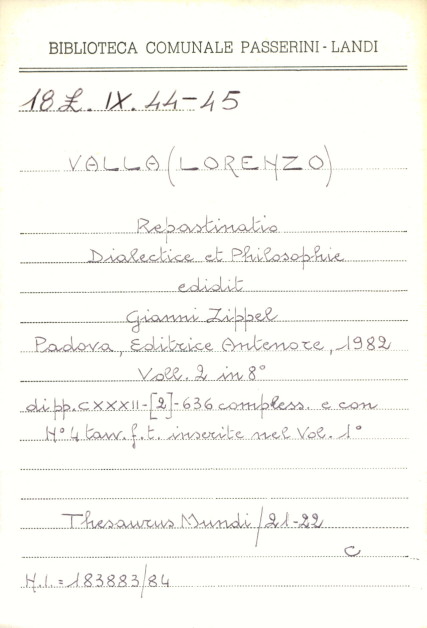 BIBLIOTECA COMUNALE PASSERINI-LANDI
18 £. IX. 44-45
VALLA (LORENZO)
Repastinatio
Dialectice et Philosophie
edidit
Gianni Zippel
Padova, Editrice Antenore, 1982
Voll. 2 in 8°
di pp. CXXXII-[2]-636 compless. e con
N° 4 tavv. f.t. inserite nel Vol. 1°
Thesaurus Mundi/21-22
C
N.I. = 183883/84